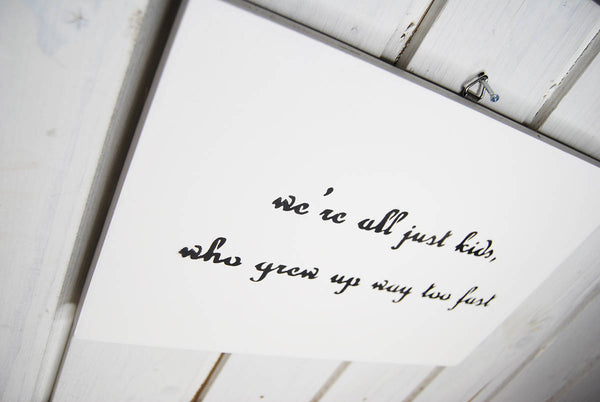 we're all just kids,
who grew up way too fast